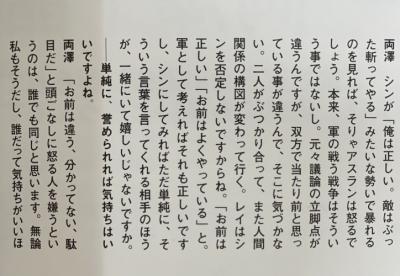 両澤　シンが「俺は正しい。敵はぶっ
た斬ってやる」みたいな勢いで暴れる
のを見れば、そりゃアスランは怒るで
しょう。本来、軍の戦う戦争はそうい
う事ではないし。元々議論の立脚点が
違うんですが、双方で当たり前と思っ
ている事が違うんで、そこに気づかな
い。二人がぶつかり合って、また人間
関係の構図が変わって行く。レイはシ
ンを否定しないですからね。「お前は
正しい」「お前はよくやっている」と。
軍として考えればそれも正しいです
し、シンにしてみればただ単純に、そ
ういう言葉を言ってくれる相手のほう
が、一緒にいて嬉しいじゃないですか。
――単純に、誉められれば気持ちはい
いですよね。
両澤　「お前は違う、分かってない、駄
目だ」と頭ごなしに怒る人を嫌うとい
うのは、誰でも同じと思います。無論
私もそうだし、誰だって気持ちがいいほ